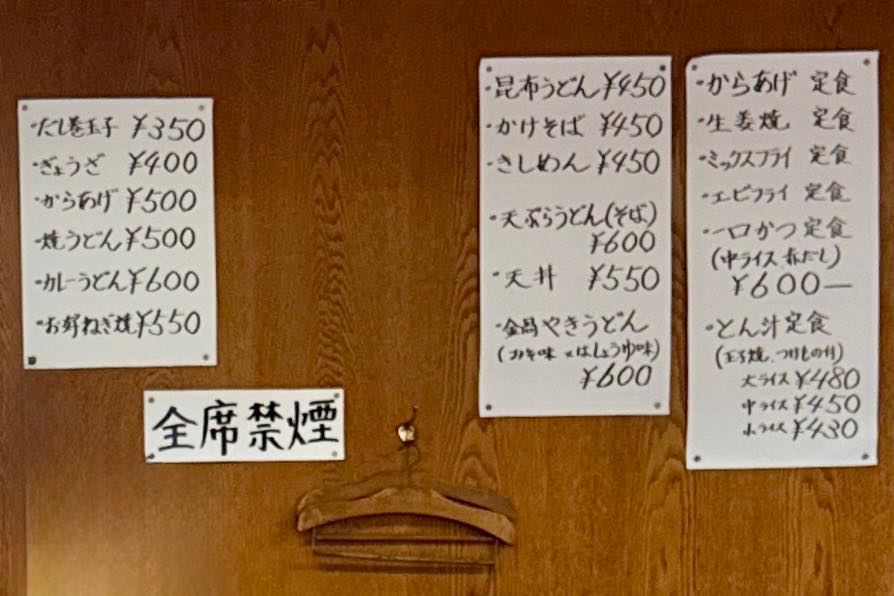 ・だし巻玉子 ¥350
・ぎょうざ ¥400
・からあげ ¥500
・焼うどん ¥500
・カレーうどん ¥600
・お好ねぎ焼 ¥550
全席禁煙
・昆布うどん ¥450
・かけそば ¥450
・きしめん ¥450
・天ぷらうどん(そば)
¥600
・天丼 ¥550
・鍋やきうどん
(みそ味 又はしょうゆ味)
¥600
・からあげ 定食
・生姜焼 定食
・ミックスフライ 定食
・エビフライ 定食
・一口かつ定食
(中ライス 赤だし)
¥600—
・とん汁定食
(玉子焼、つけもの付)
大ライス ¥480
中ライス ¥450
小ライス ¥430